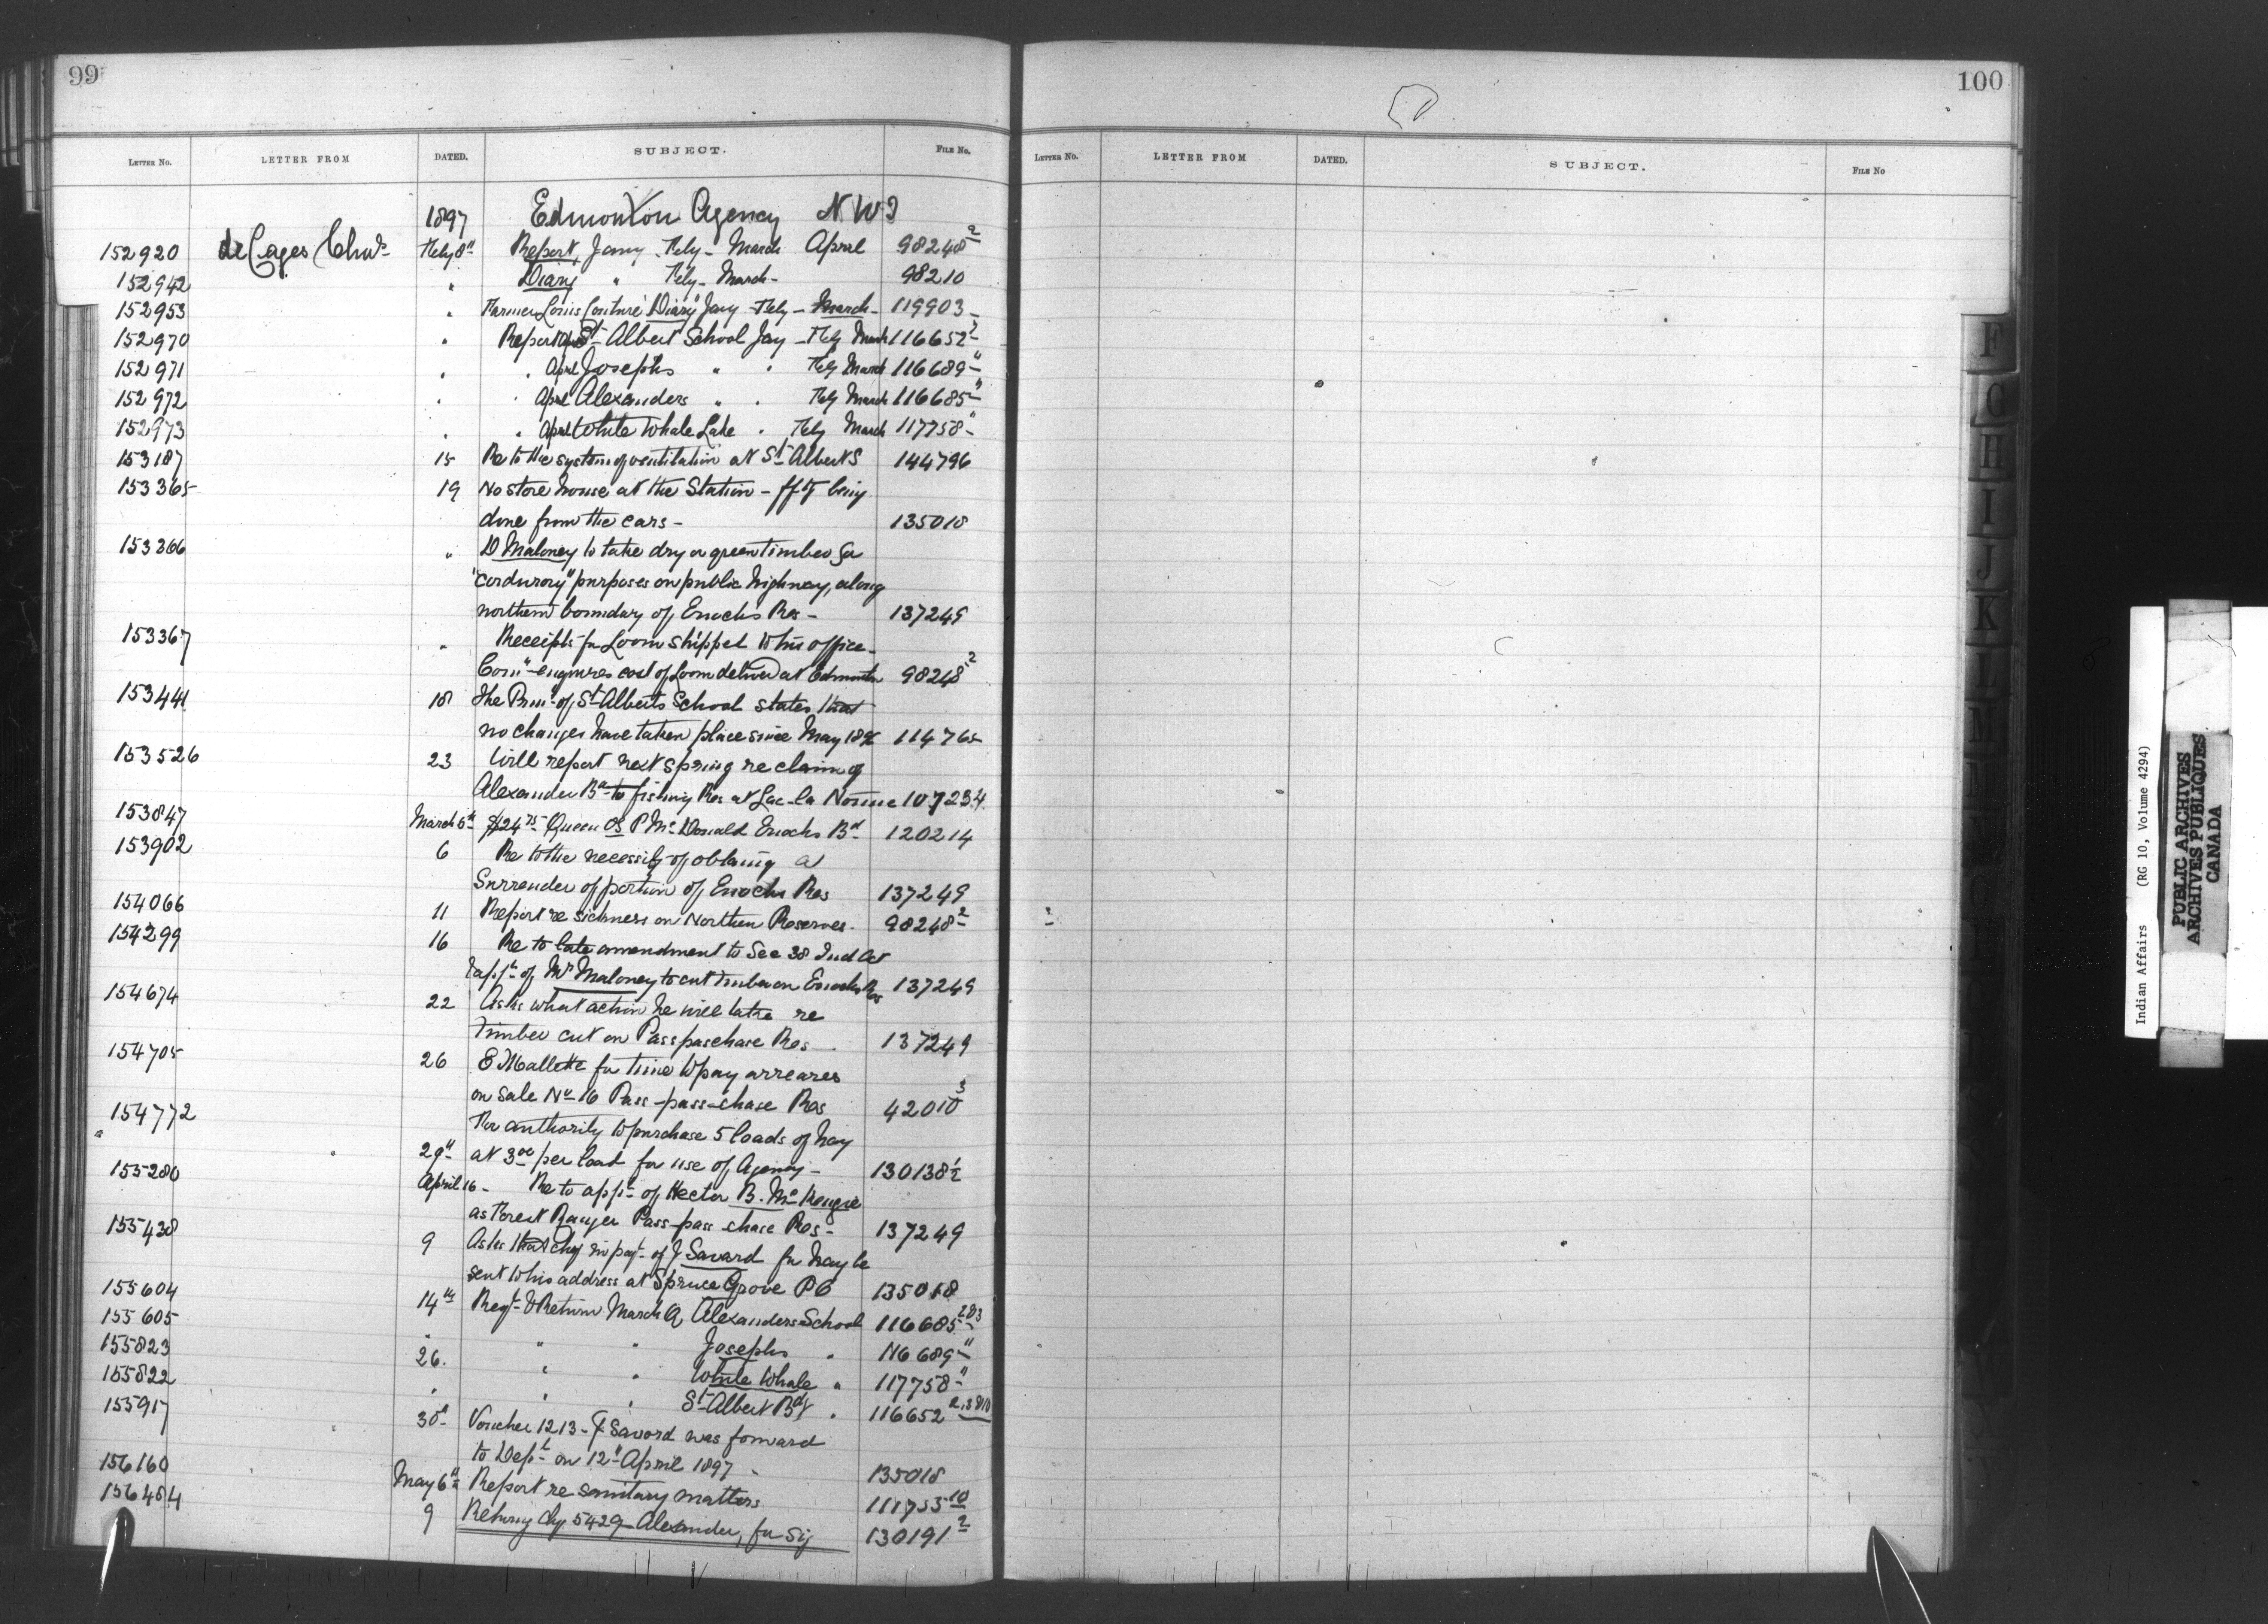 99
LETTER NO. LETTER FROM DATED. SUBJECT. FILE NO.
1897 Edmonton Agency N W T
152920 de Cages Chas Feby 8" Report, Jany. Feby - March April 98248 2
152942 " Diary " Feby - March - 98210
152953 " Farmer Louis Couture Diary Jany Feby - March - 119903
152970 " Report Apl St Albert School Jany - Feby March 116652 2
152971 " " April Josephs " " Feby March 116689 "
152972 " " April Alexanders " " Feby March 116685 "
152973 " " April White Whale Lake " Feby March 117758 "
153187 15 Re to the system of ventilation at St Alberts 144796
153365 19 No store house at the Station - being
done from the cars - 135018
153366 " D Maloney to take dry or green timber for
"corduroy" purposes on public highway, along
northern boundary of Enochs Res - 137249
153367 " Receipts for Loom shipped to his office -
Com" enquires cost of Loom delived at Edmonton 98248 2
153441 18 The Prin. of St Alberts School states that
no changes have taken place since May 1896 114765
153526 23 Will report next spring re claim of
Alexander Bd to fishing Res at Lac la Nonne 107234
153847 March 5th $24 75 Queen vs P McDonald Enochs Bd 120214
153902 6 Re to the necessity of obtaing a
Surrender of portion of Enochs Res 137249
154066 11 Report re sickness on Northern Reserves. 98248 2
154299 16 Re to late amendment to Sec 38 Ind Act
& appt of Mr Maloney to cut timber on Enochs Res 137249
154674 22 Asks what action he will take re
timber cut on Passpaschase Res. 137249
154705 26 E Mallette for time to pay arreares
on Sale No 16 Pass-pass-chase Res 42010 3
154772 For authority to purchase 5 loads of hay
29" at 3 00 per load for use of Agency - 130138 1/2
155280 April 16 - Re to appt of Hector B. McKenzie
as Forest Ranger Pass-pass-chase Res - 137249
155438 9 Asks that chq in payt of J Savard for hay be
sent to his address at Spruce Grove P O 135018
155604 14th Regt & Return March Q Alexanders School 116685 2&3
155605 " " " Josephs " 116689 "
155823 26. " " White Whale " 117758 "
155822 " " " St Albert Bd " 116652
155917 30" Voucher 1213 - J Savard was forward
to Dept on 12" April 1897 - 135018
156160 May 6th Report re sanitary matters 111755 10
156484 9 Returng Chq. 5429 Alexander, for sig 130191 2
100
LETTER NO. LETTER FROM DATED. SUBJECT. FILE NO
F
G
H
I
J
K
L
M
Indian Affairs (RG 10, Volume 4294)
PUBLIC ARCHIVES
ARCHIVES PUBLIQUES
CANADA